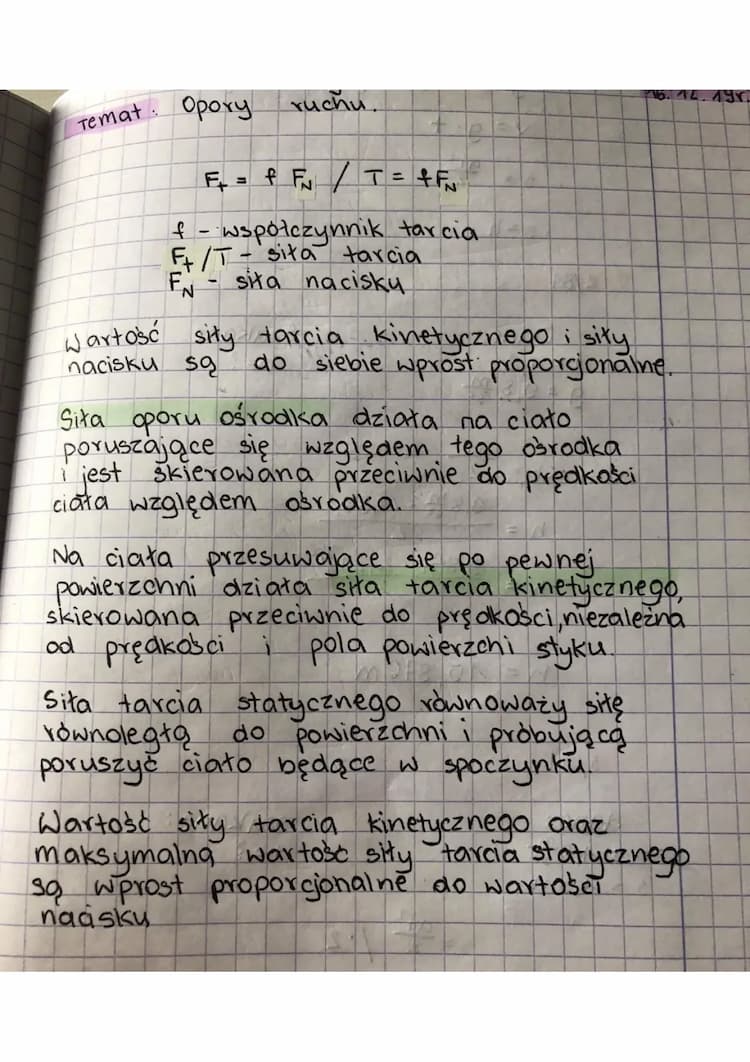 Temat: Opory ruchu.
16.12.19r.
Ft = f FN / T = fFN
f - współczynnik tarcia
Ft/T - siła tarcia
FN - siła nacisku
Wartość siły tarcia kinetycznego i siły
nacisku są do siebie wprost proporcjonalne.
Siła oporu ośrodka działa na ciało
poruszające się względem tego ośrodka
i jest skierowana przeciwnie do prędkości
ciała względem ośrodka.
Na ciała przesuwające się po pewnej
powierzchni działa siła tarcia kinetycznego,
skierowana przeciwnie do prędkości, niezależna
od prędkości i pola powierzchi styku.
Siła tarcia statycznego równoważy siłę
równoległą do powierzchni i próbującą
poruszyć ciało będące w spoczynku.
Wartość siły tarcia kinetycznego oraz
maksymalną wartość siły tarcia statycznego
są wprost proporcjonalne do wartości
nacisku